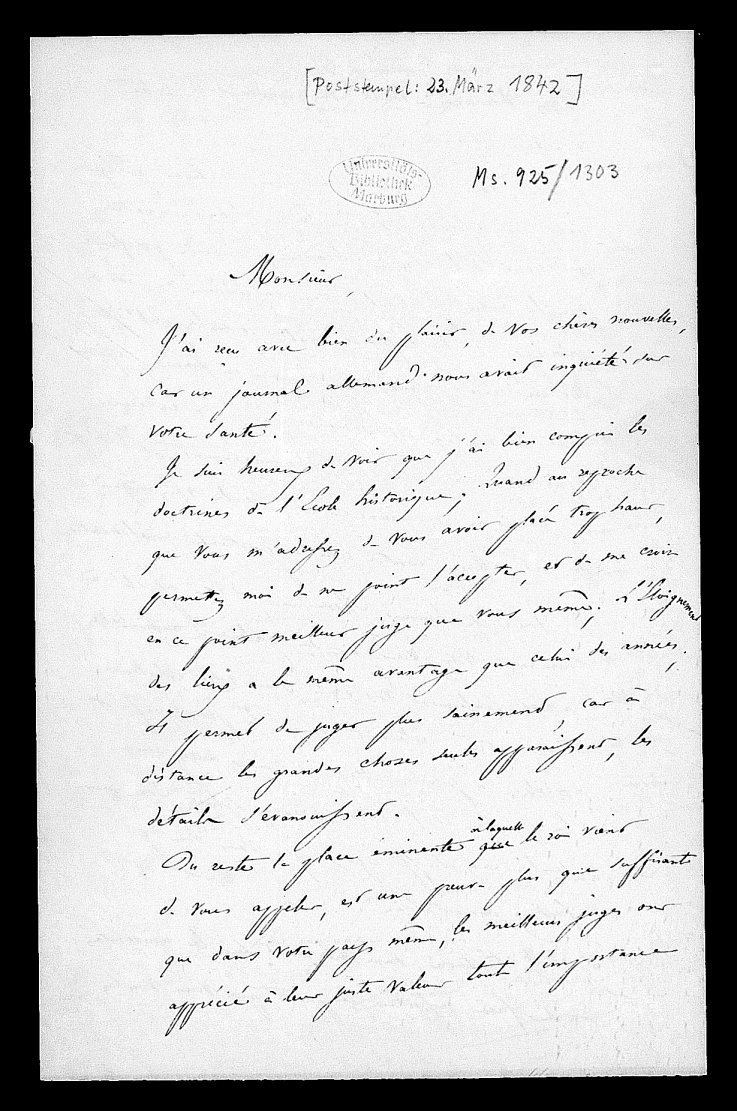 [Poststempel: 23. März 1842]
Universitäts-
Bibliothek
Marburg
Ms. 925/1303
Monsieur,
J'ai reçu avec bien du plaisir, de vos chères nouvelles,
car un journal allemand nous avait inquiété sur
votre santé.
Je suis heureux de voir que j'ai bien compris les
doctrines de l'École historique; Quand au reproche
que vous m'adressez de vous avoir placé trop haut,
permettez moi de ne point l'accepter, et de me croire
en ce point meilleur juge que vous même. L'Éloignement
des lieux a le même avantage que celui des années;
Il permet de juger plus sainement, car à
distance les grandes choses seules apparaissent, les
détails s'évanouissent.
Du reste la place éminente à laquelle le roi vient
de vous appeler, est une preuve plus que suffisante
que dans votre pays même, les meilleurs juges ont
apprécié à leur juste valeur toute l'importance